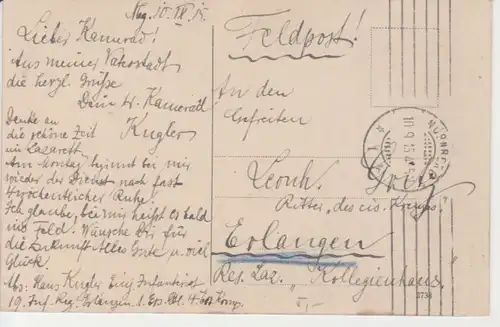 Nbg. 10. IX. 15.
Lieber Kamerad!
Aus meiner Vaterstadt
die herzl. Grüße
Dein tr. Kamerad
Kugler
Denke an
die schöne Zeit
im Lazarett
Am Montag beginnt bei mir
wieder der Dienst nach fast
4wöchentlicher Ruhe!
Ich glaube, bei mir heißt es bald
ins Feld. Wünsche Dir für
die Zukunft Alles Gute u. viel
Glück.
Abs. Hans Kugler Einj. Infanterist
19. Inf. Reg. Erlangen. 1. Ers. Btl. 4. Komp.
Feldpost!
An den
Gefreiten
Leonh.
Ritter "des eis. Kreuzes!"
Erlangen
Res. Laz. "Kollegienhaus"
I,-
2734
NUERNBERG
10 9 15
1